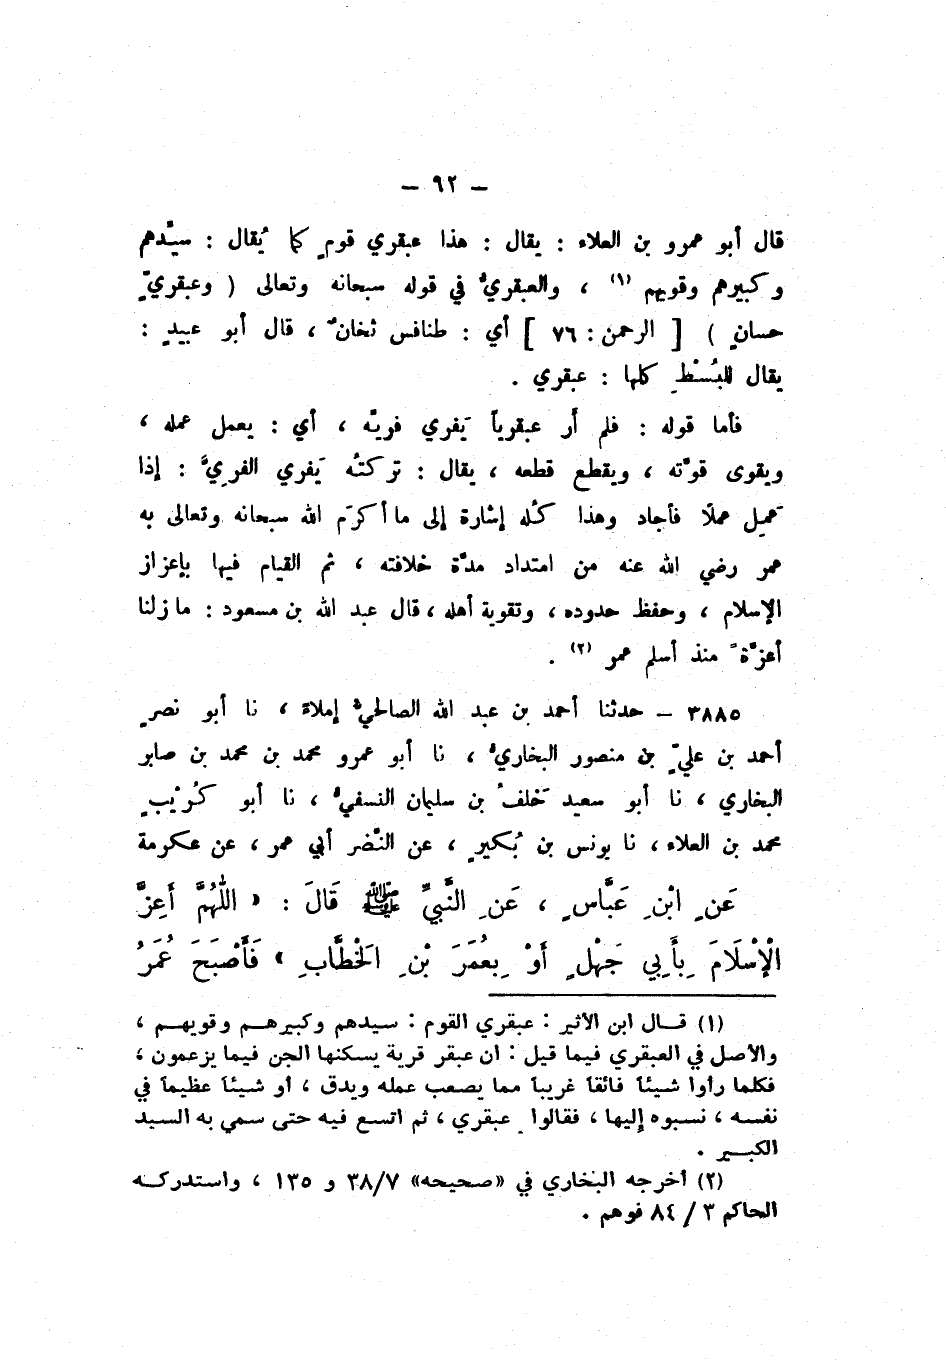 — ٩٢ —
قال أبو عمرو بن العلاء : يقال : هذا عبقري قومٍ كما يُقال : سيّدهم
وكبيرهم وقويهم (١) ، والعبقريُّ في قوله سبحانه وتعالى ( وعبقريٍّ
حسانٍ ) [ الرحمن : ٧٦ ] أي : طنافس ثخانٌ ، قال أبو عبيدٍ :
يقال للبُسْطِ كلها : عبقري .
فأما قوله : فلم أَر عبقرياً يَفري فريّه ، أي : يعمل عمله ،
ويقوى قوّته ، ويقطع قطعه ، يقال : تركتُه يَفري الفرِيَّ : إذا
عَمِل عملًا فأجاد وهذا كلّه إشارة إلى ما أكرَم الله سبحانه وتعالى به
عمر رضي الله عنه من امتداد مدّة خلافته ، ثم القيام فيها بإعزاز
الإسلام ، وحفظ حدوده ، وتقوية أهله ، قال عبد الله بن مسعود : ما زلنا
أعزّةً منذ أسلم عمر (٢) .
٣٨٨٥ – حدثنا أحمد بن عبد الله الصالحيُّ إملاءً ، نا أبو نصرٍ
أحمد بن عليّ بن منصور البخاريُّ ، نا أبو عمرو محمد بن محمد بن صابر
البخاري ، نا أبو سعيد خَلفُ بن سليمان النسفيُّ ، نا أبو كُرَيْبٍ
محمد بن العلاء ، نا يونس بن بُكيرٍ ، عن النّضر أبي عمر ، عن عكرمة
عَنِ ابْنِ عَبَّاسٍ ، عَنِ النَّبِيِّ ﷺ قَالَ : « اللَّهُمَّ أَعِزَّ
الْإِسْلَامَ بِأَبِي جَهْلٍ أَوْ بِعُمَرَ بْنِ الْخَطَّابِ » فَأَصْبَحَ عُمَرُ
(١) قال ابن الاثير : عبقري القوم : سيدهم وكبيرهم وقويهم ،
والأصل في العبقري فيما قيل : ان عبقر قرية يسكنها الجن فيما يزعمون ،
فكلما رأوا شيئاً فائقاً غريباً مما يصعب عمله ويدق ، أو شيئاً عظيماً في
نفسه ، نسبوه إليها ، فقالوا عبقري ، ثم اتسع فيه حتى سمي به السيد
الكبير .
(٢) أخرجه البخاري في «صحيحه» ٣٨/٧ و ١٣٥ ، واستدركه
الحاكم ٣ / ٨٤ فوهم .